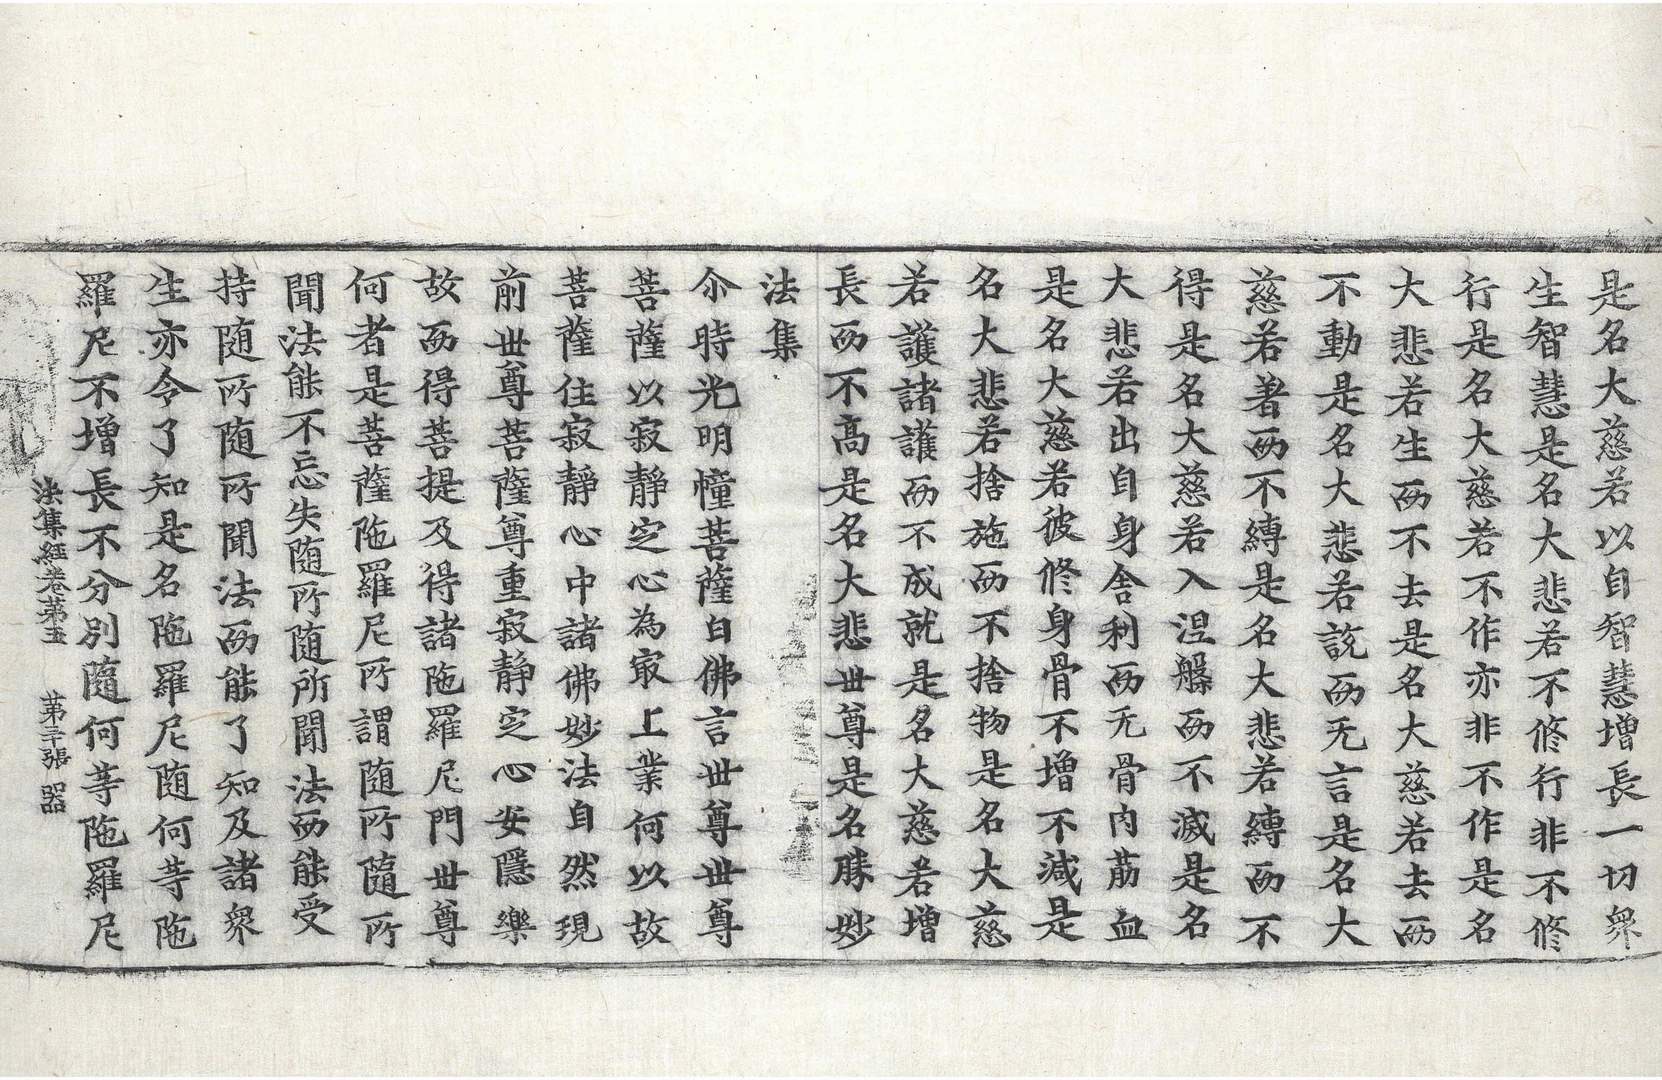 是名大慈若以自智慧增長一切衆
生智慧是名大悲若不修行非不修
行是名大慈若不作亦非不作是名
大悲若生而不去是名大慈若去而
不動是名大悲若說而无言是名大
慈若著而不縛是名大悲若縛而不
得是名大慈若入涅槃而不滅是名
大悲若出自身舍利而无骨肉筋血
是名大慈若彼修身骨不增不減是
名大悲若捨施而不捨物是名大慈
若護諸護而不成就是名大慈若增
長而不高是名大悲世尊是名勝妙
法集
尒時光明憧菩薩白佛言世尊世尊
菩薩以寂靜定心為㝡上業何以故
菩薩住寂靜心中諸佛妙法自然現
前世尊菩薩尊重寂靜定心安隱樂
故而得菩提及得諸陁羅尼門世尊
何者是菩薩陁羅尼所謂随所隨所
聞法能不忘失随所随所聞法而能受
持随所随所聞法而能了知及諸衆
生亦令了知是名陁羅尼随何等陁
羅尼不增長不分別隨何等陁羅尼
法集經卷第五 第三張 器